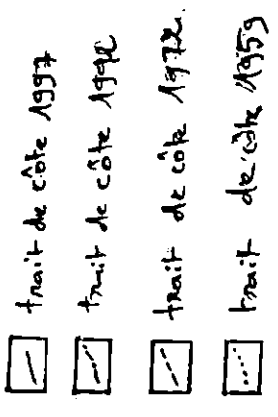 trait de côte 1997
trait de côte 1992
trait de côte 1972.
trait de côte 1959